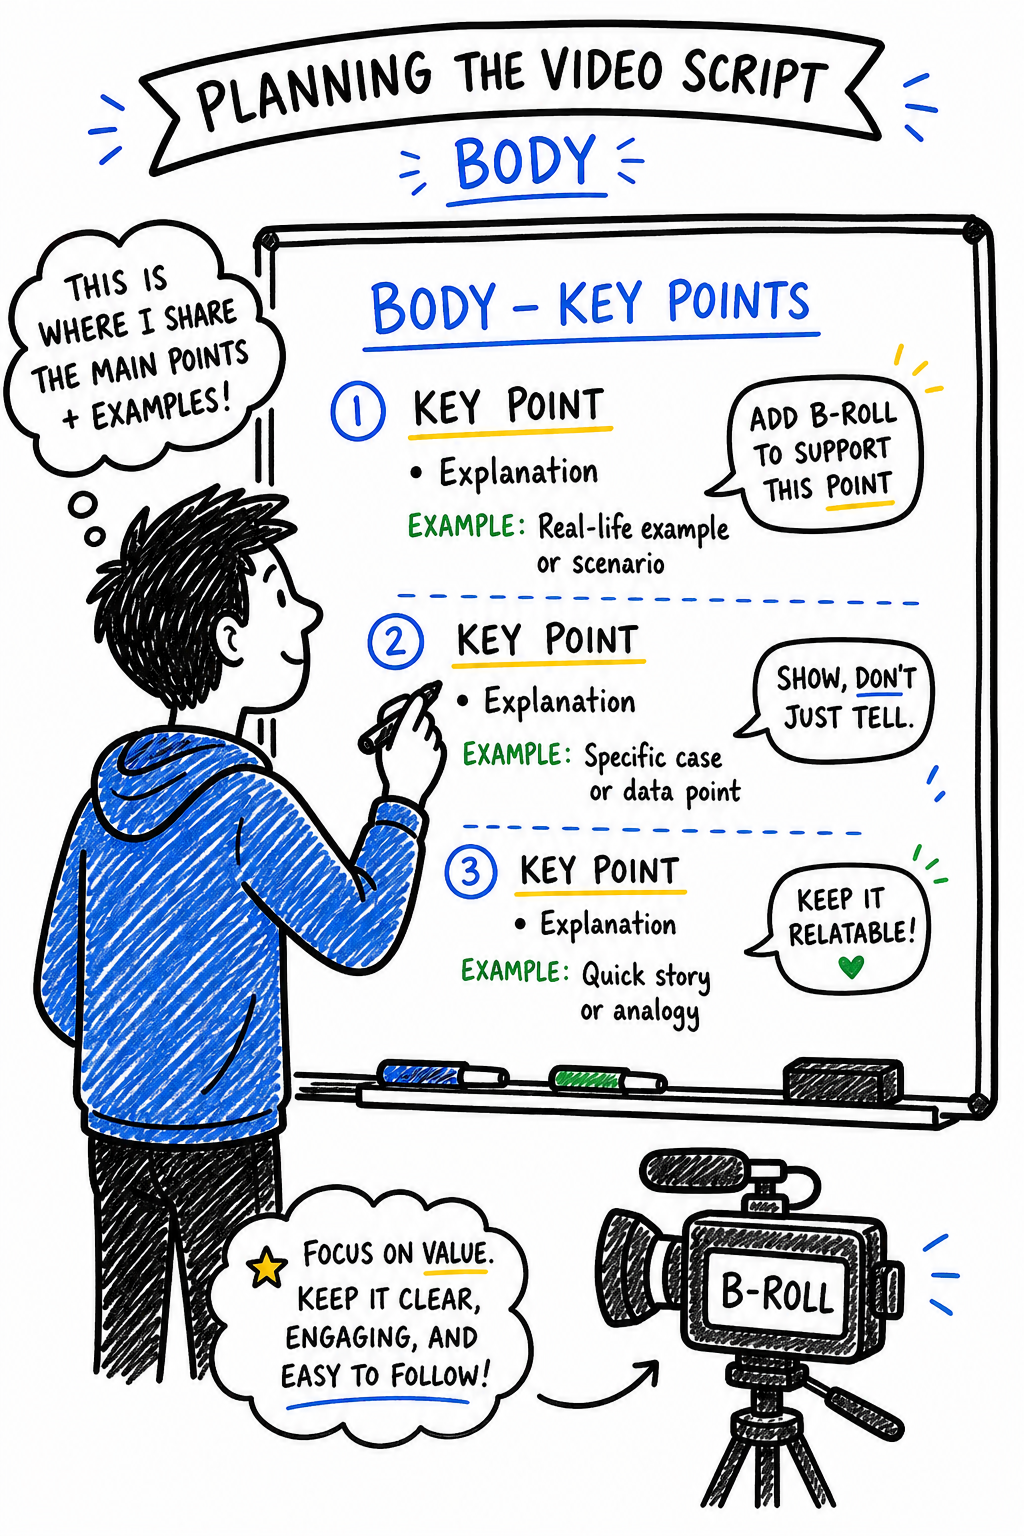 PLANNING THE VIDEO SCRIPT
BODY
THIS IS
WHERE I SHARE
THE MAIN POINTS
+ EXAMPLES!
BODY – KEY POINTS
1 KEY POINT
• Explanation
EXAMPLE: Real-life example
or scenario
ADD B-ROLL
TO SUPPORT
THIS POINT
2 KEY POINT
• Explanation
EXAMPLE: Specific case
or data point
SHOW, DON'T
JUST TELL.
3 KEY POINT
• Explanation
EXAMPLE: Quick story
or analogy
KEEP IT
RELATABLE!
FOCUS ON VALUE.
KEEP IT CLEAR,
ENGAGING, AND
EASY TO FOLLOW!
B-ROLL